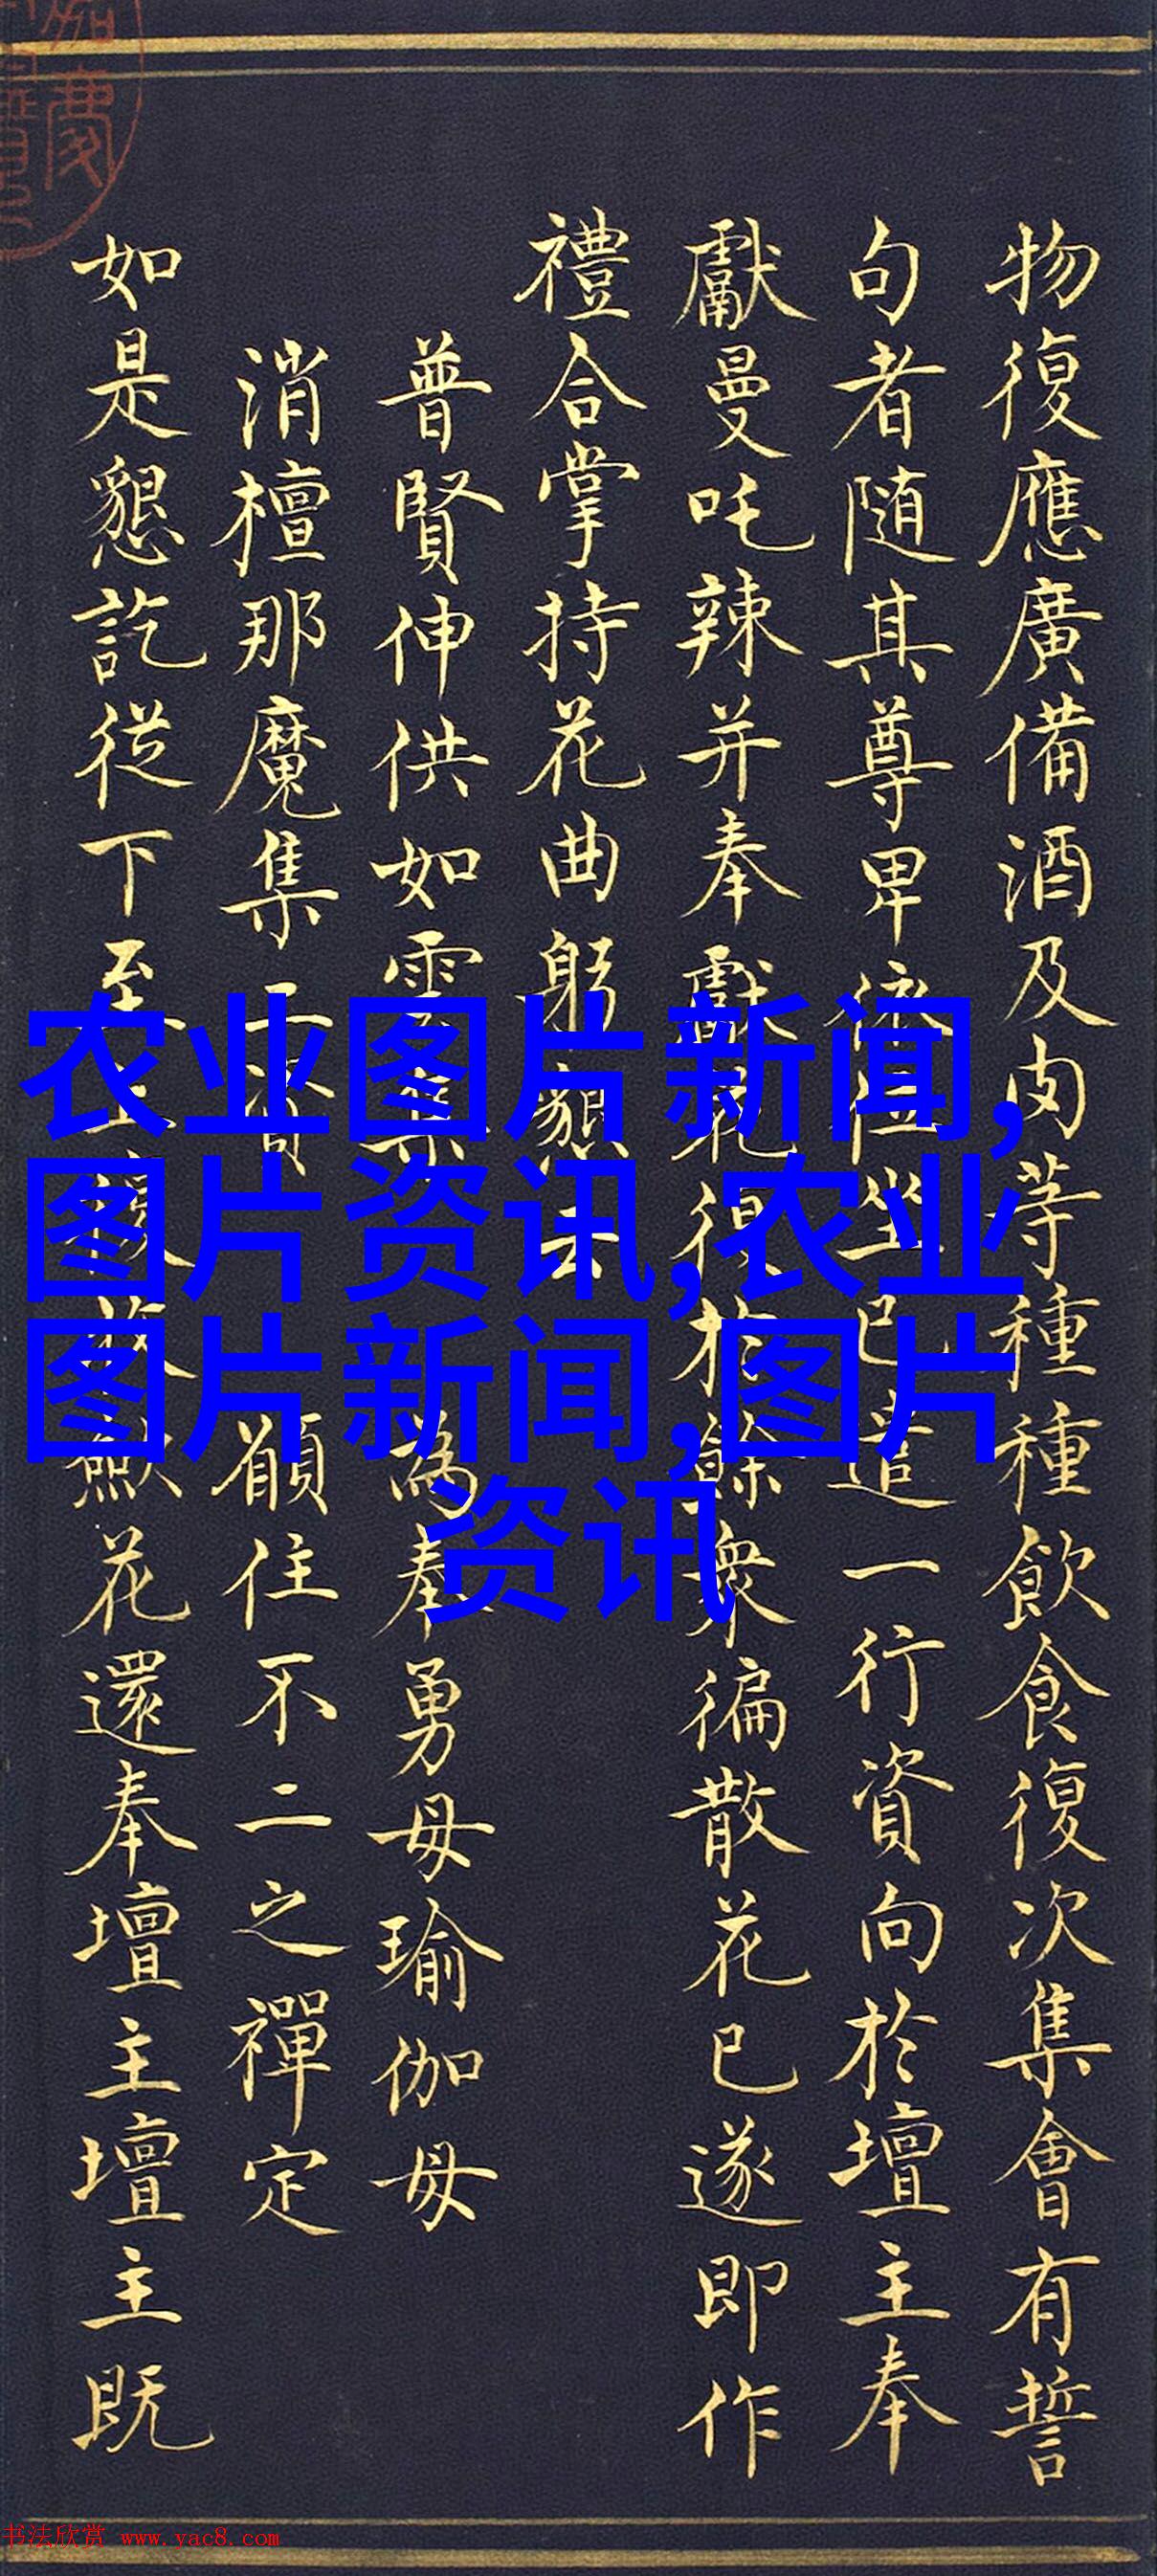 物復應廣備酒及肉等種種飲食復次集會有誓
句者随其尊卑依位坐已遣一行資向於壇主奉
獻曼吒辣并奉獻花復於餘衆徧散花已遂即作
禮合掌持花曲躬懇云
普賢伸供如雲集 為奉勇母瑜伽母
消檀那魔集 願住不二之禪定
如是懇訖從下至 花還奉壇主壇主既
农业图片新闻,
图片资讯,农业
图片新闻,图片
资讯
书法欣赏 www.yac8.com